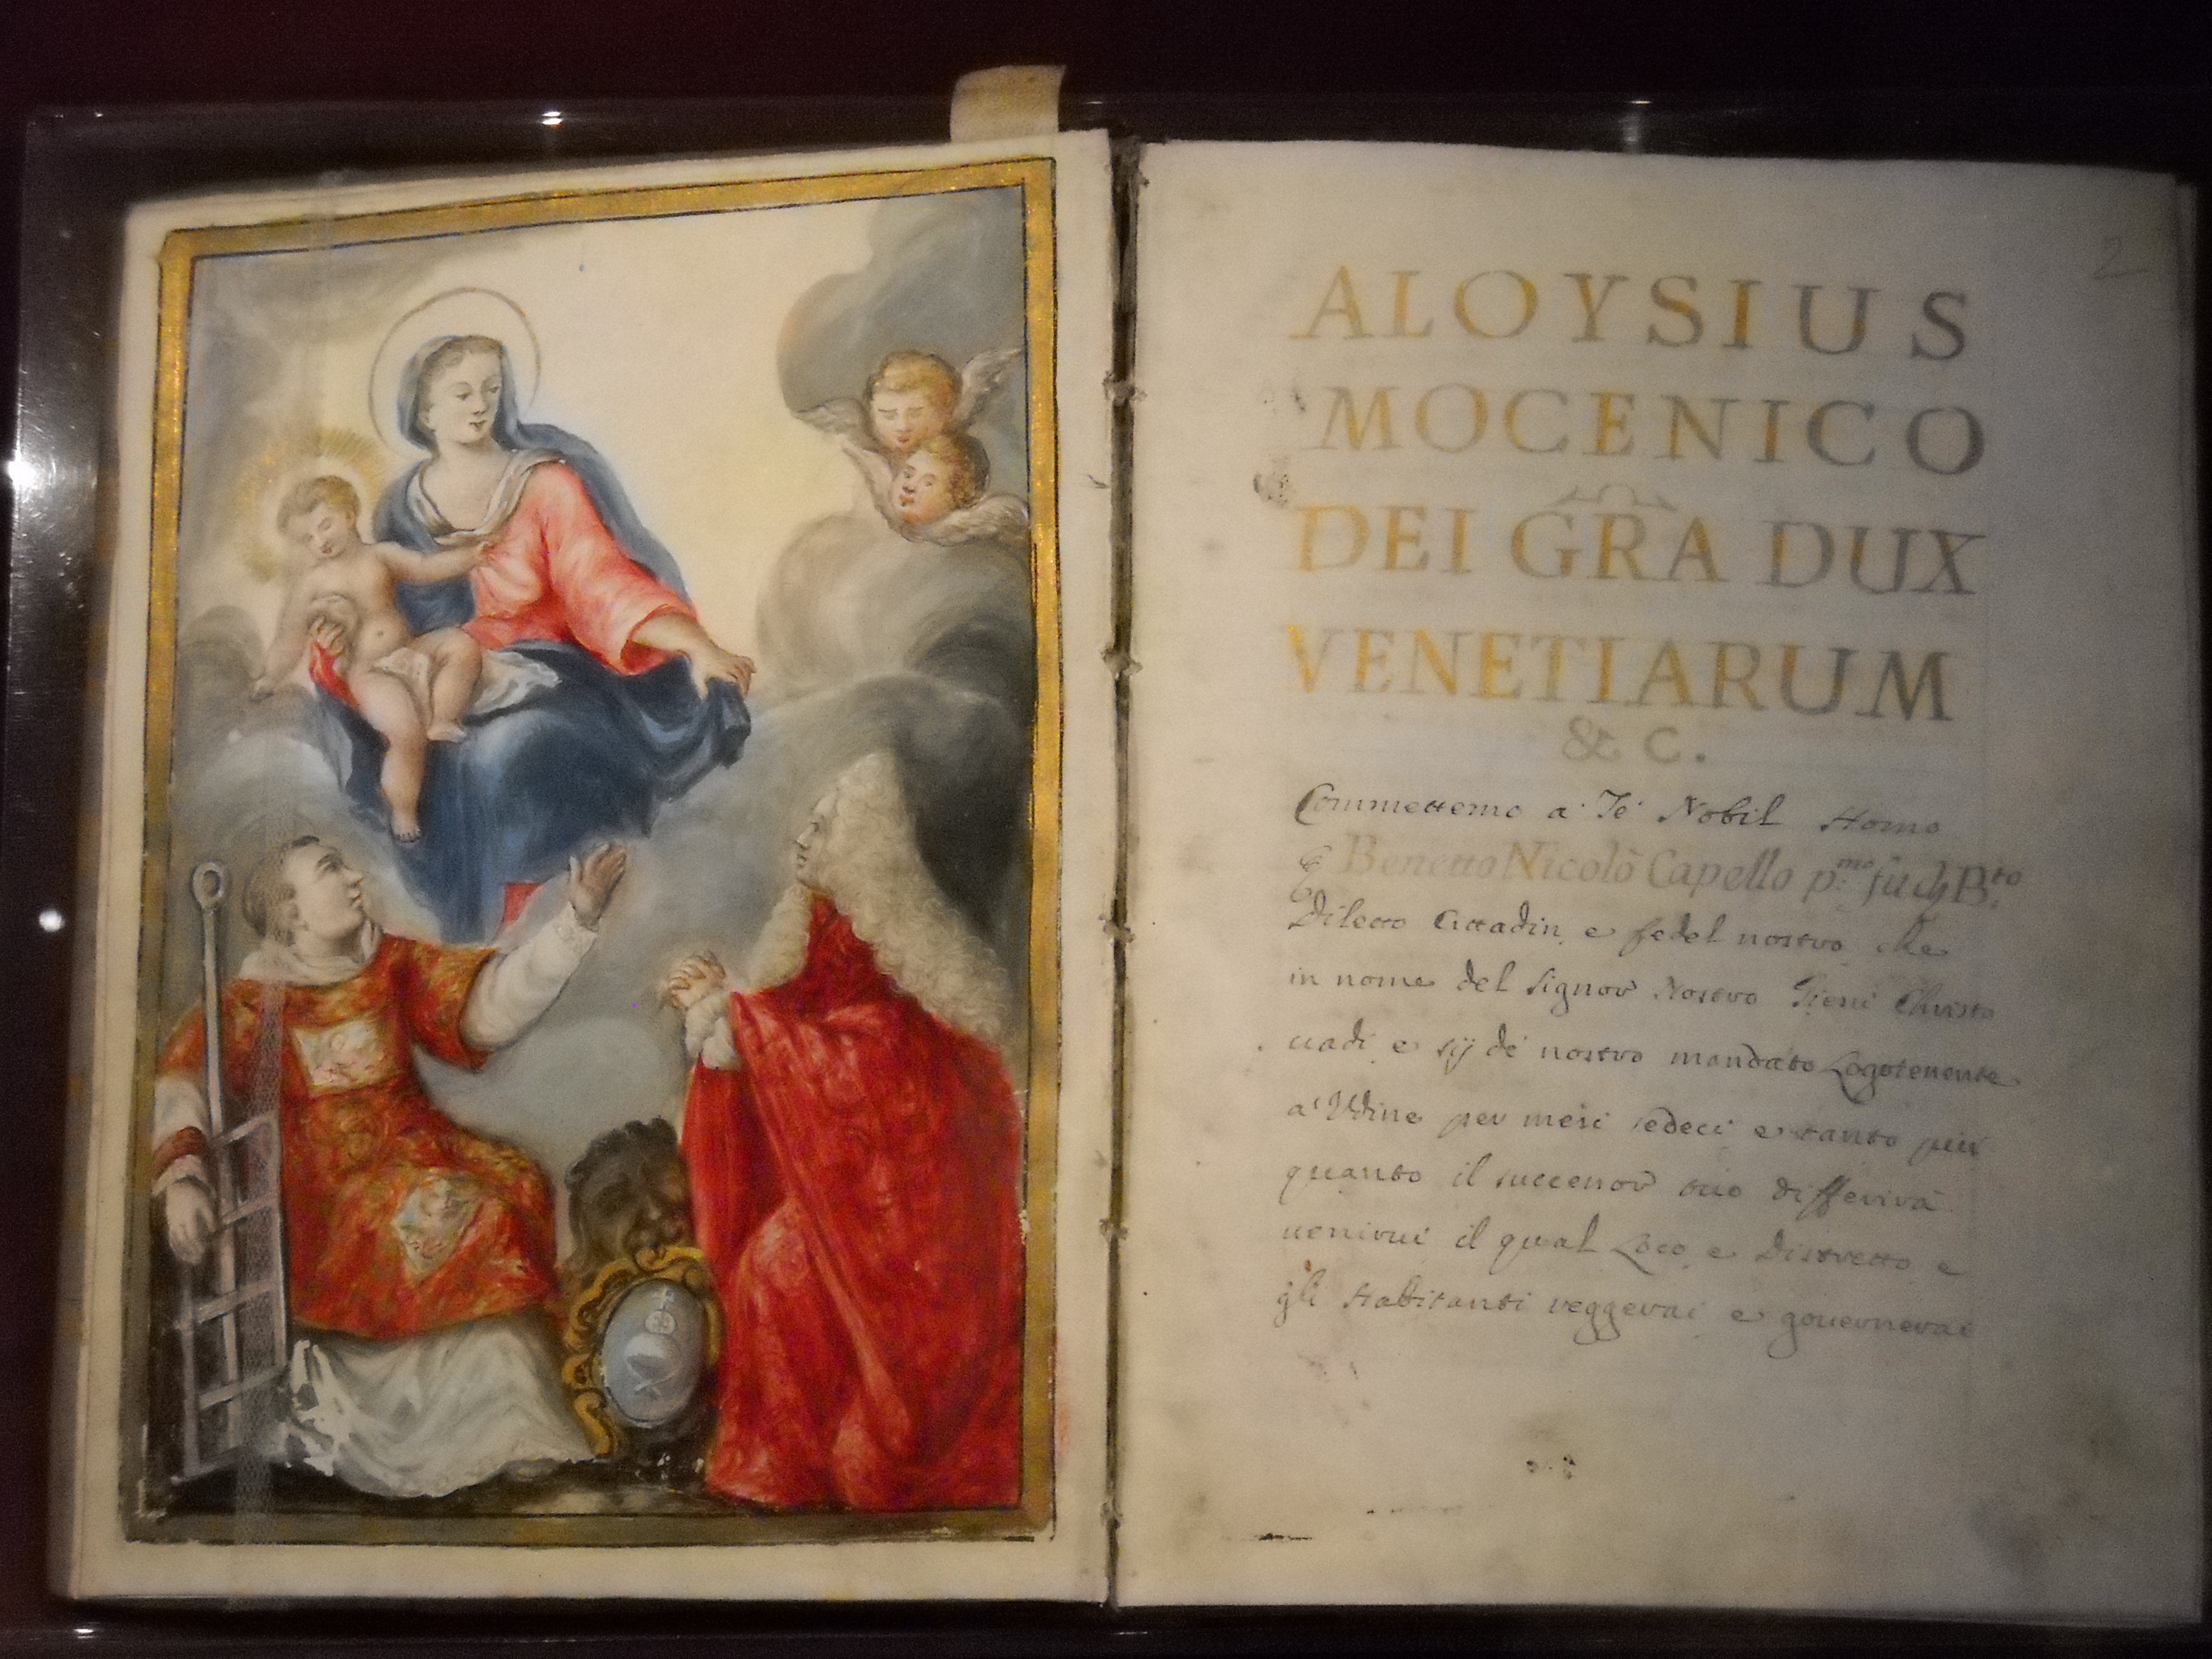 2
ALOYSIUS
MOCENICO
DEI GRA DUX
VENETIARUM
& C.
Commettemo a' Te' Nobil Homo
Benetto Nicolò Capello p.mo fu B.to
Diletto Cittadin, e fedel nostro, che
in nome del Signor Nostro Giesù Christo
uadi, e sij de' nostro mandato Logotenente
a' Vdine per mesi sedeci e tanto più
quanto il successor tuo differirà
uenirui il qual Loco, e Distretto, e
gli Habitanti reggerai, e gouernerai